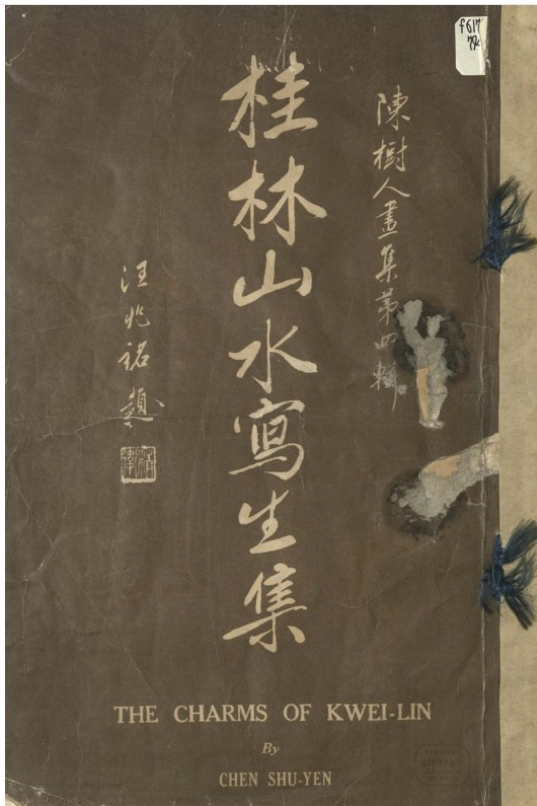 陳樹人畫集第四輯
桂林山水寫生集
汪兆銘題
THE CHARMS OF KWEI-LIN
By
CHEN SHU-YEN